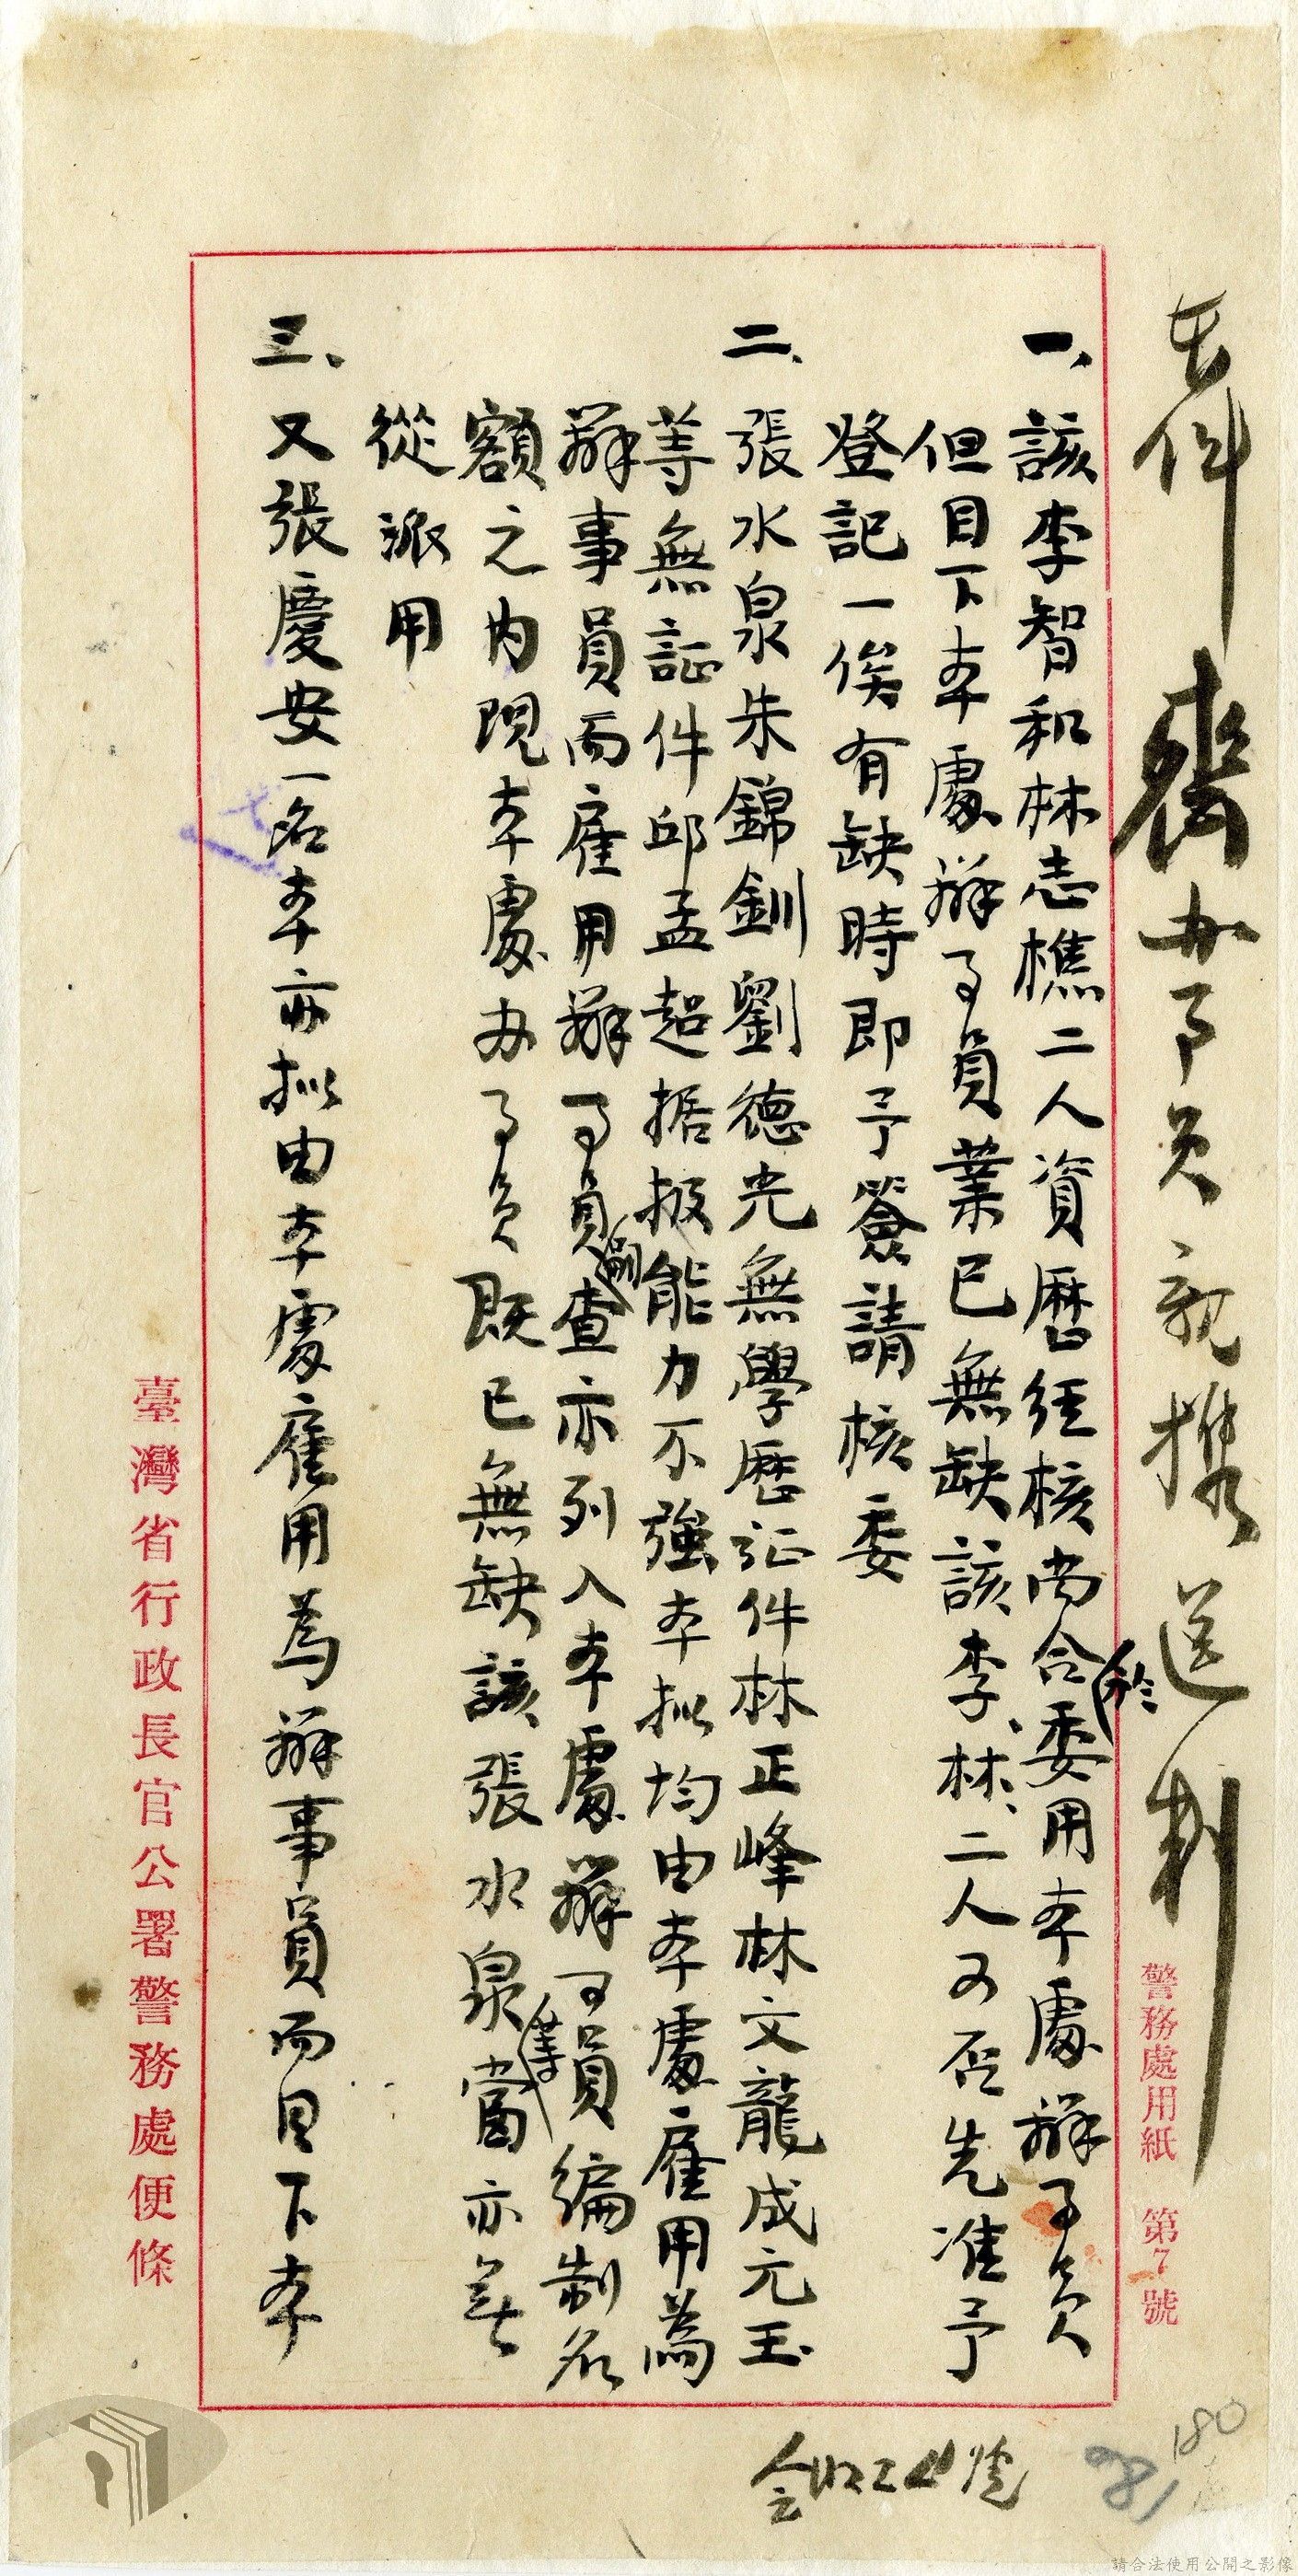 警務處用紙 第7號
一、該李智和林志樵二人資歷経核尚合於委用本處辦事員
但目下本處辦事員業已無缺該李、林、二人可否先准予
登記一俟有缺時即予簽請核委
二、張水泉朱錦釧劉德光無學歷証件林正峰林文龍成元玉
等無証件邱孟超据報能力不強本拟均由本處雇用為
辦事員而雇用辦事員嗣查亦列入本處辦事員編制名
額之内現本處办事員既已無缺該張水泉等當亦無
從派用
三、又張慶安一名本亦拟由本處雇用為辦事員而目下本
臺灣省行政長官公署警務處便條
180
181
請合法使用公開之影像